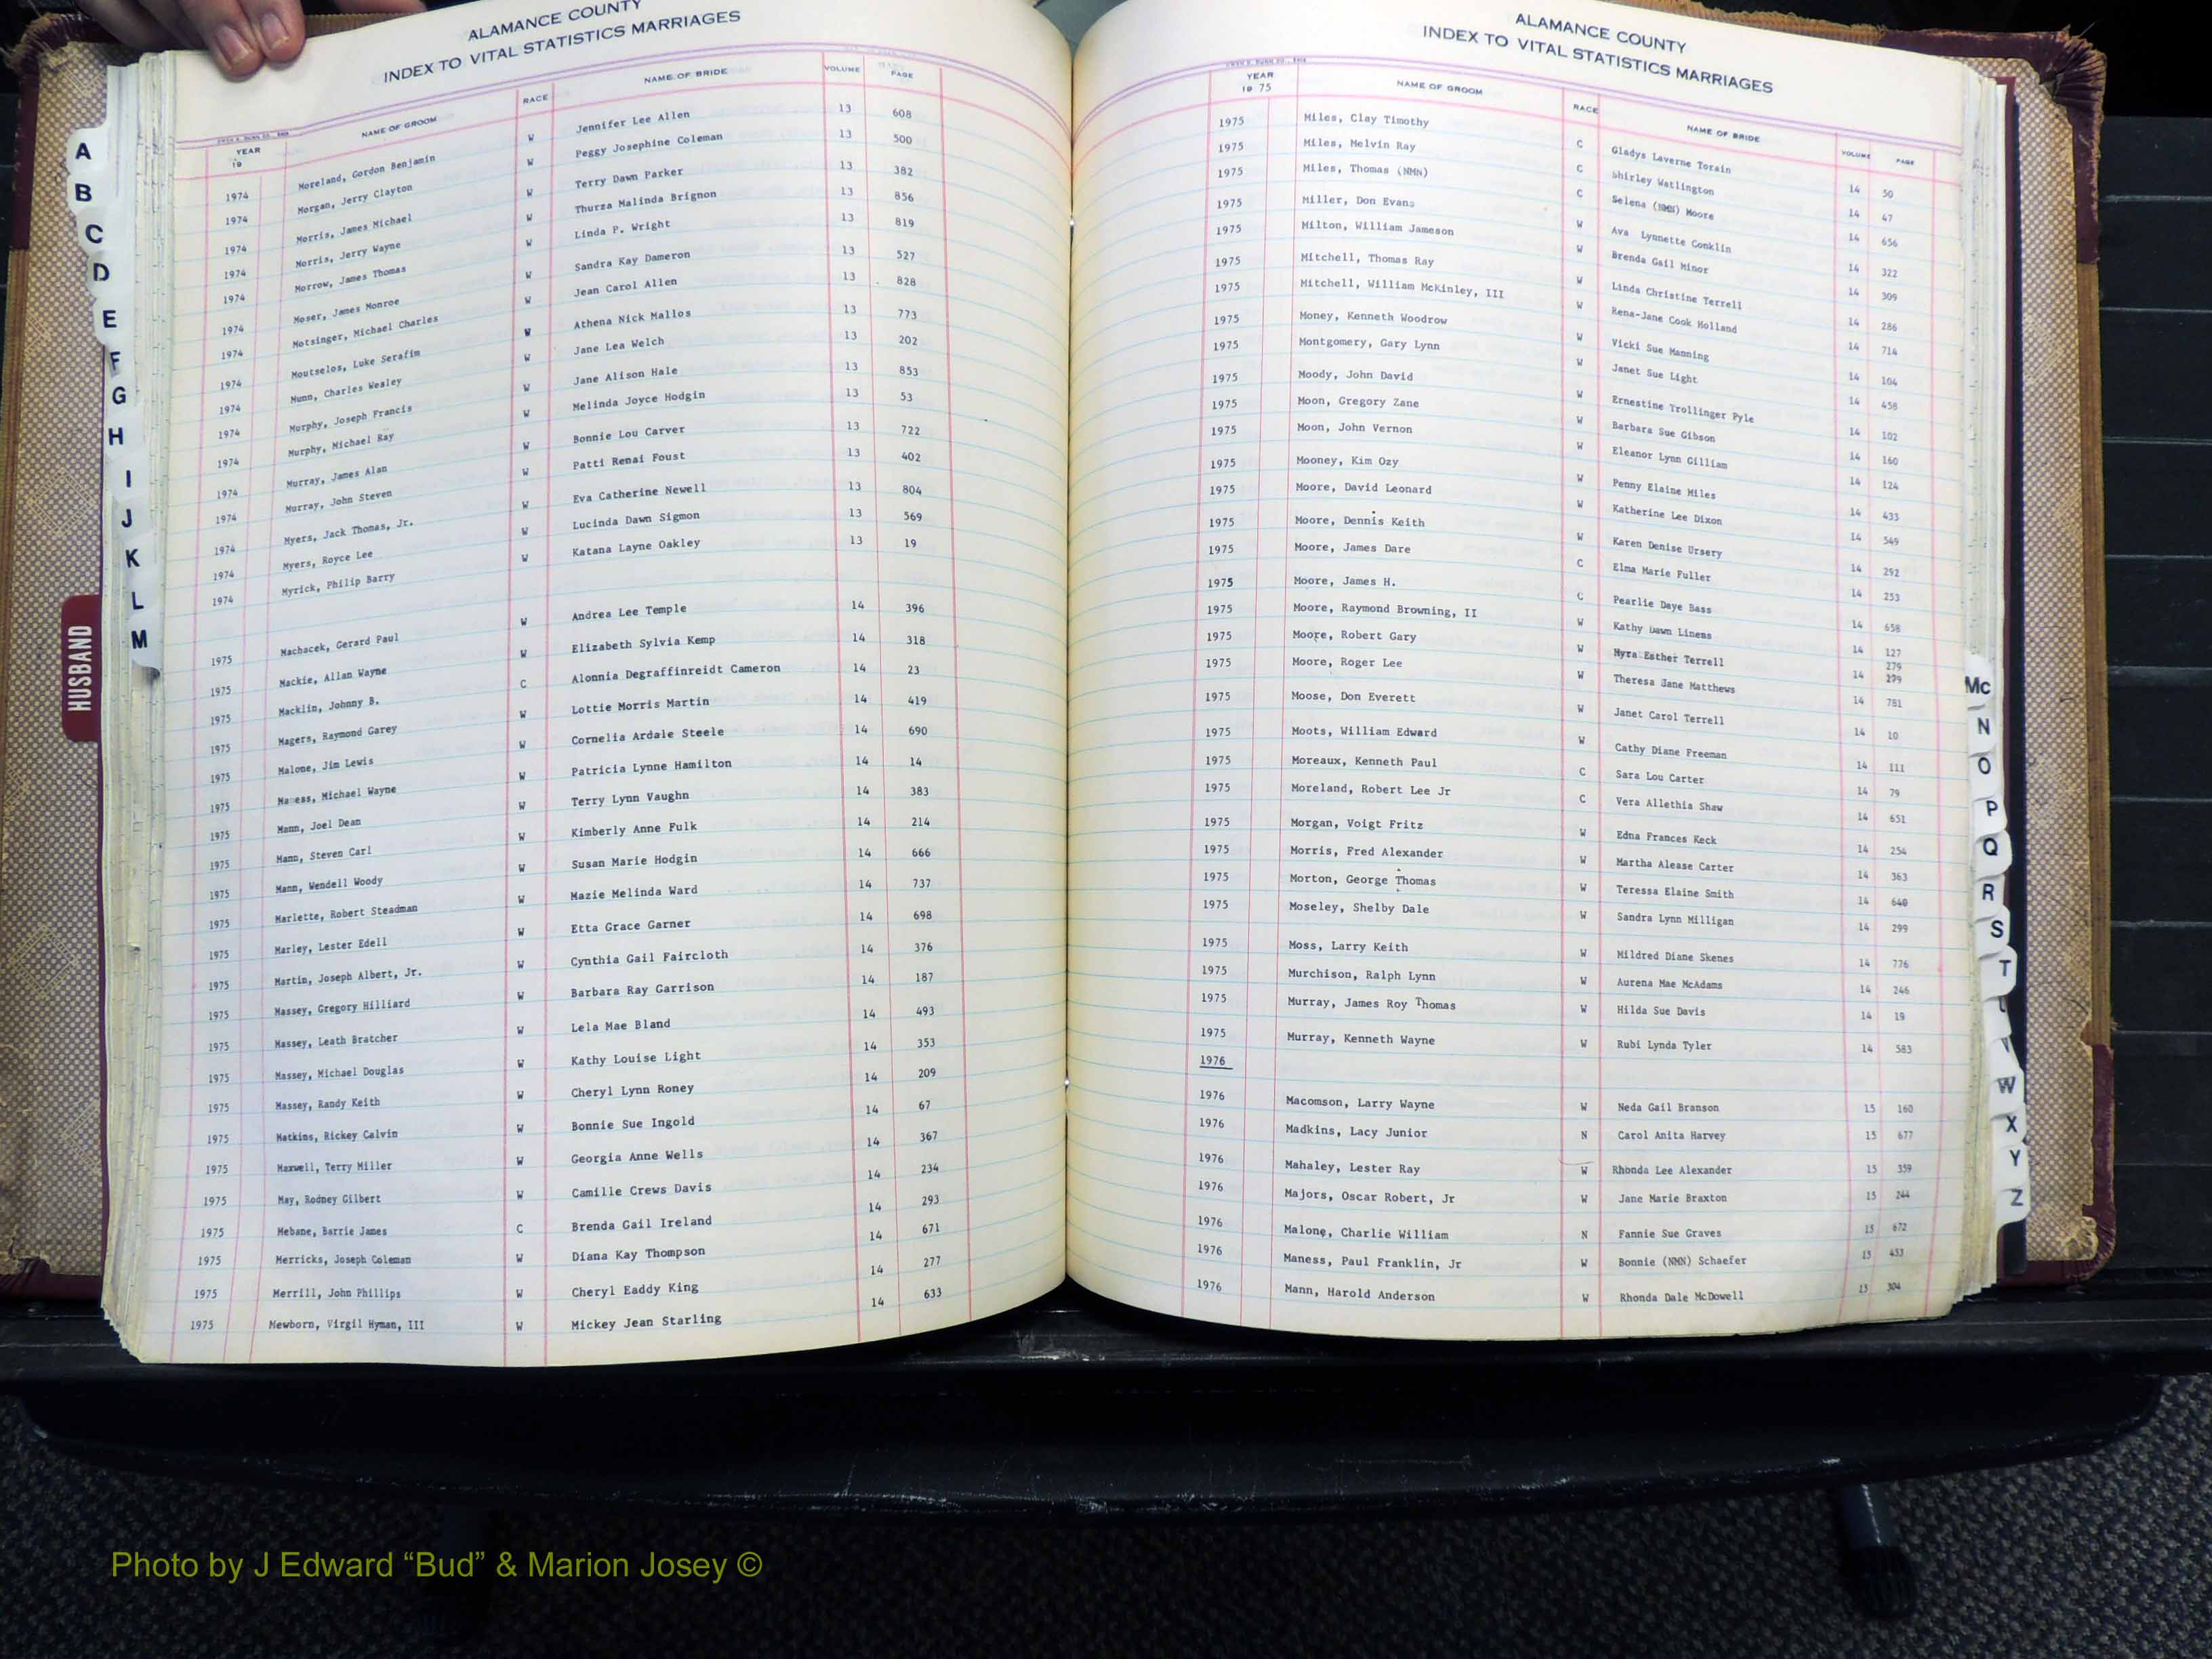 ALAMANCE COUNTY
INDEX TO VITAL STATISTICS MARRIAGES
YEAR 19 NAME OF GROOM RACE NAME OF BRIDE VOLUME PAGE
1974 Moreland, Gordon Benjamin W Jennifer Lee Allen 13 608
1974 Morgan, Jerry Clayton W Peggy Josephine Coleman 13 500
1974 Morris, James Michael W Terry Dawn Parker 13 382
1974 Morris, Jerry Wayne W Thurza Malinda Brignon 13 856
1974 Morrow, James Thomas W Linda P. Wright 13 819
1974 Moser, James Monroe W Sandra Kay Dameron 13 527
1974 Motsinger, Michael Charles W Jean Carol Allen 13 828
1974 Moutselos, Luke Serafim W Athena Nick Mallos 13 773
1974 Munn, Charles Wesley W Jane Lea Welch 13 202
1974 Murphy, Joseph Francis W Jane Alison Hale 13 853
1974 Murphy, Michael Ray W Melinda Joyce Hodgin 13 53
1974 Murray, James Alan W Bonnie Lou Carver 13 722
1974 Murray, John Steven W Patti Renai Foust 13 402
1974 Myers, Jack Thomas, Jr. W Eva Catherine Newell 13 804
1974 Myers, Royce Lee W Lucinda Dawn Sigmon 13 569
1974 Myrick, Philip Barry W Katana Layne Oakley 13 19
1975 Machacek, Gerard Paul W Andrea Lee Temple 14 396
1975 Mackie, Allan Wayne W Elizabeth Sylvia Kemp 14 318
1975 Macklin, Johnny B. C Alonnia Degraffinreidt Cameron 14 23
1975 Magers, Raymond Garey W Lottie Morris Martin 14 419
1975 Malone, Jim Lewis W Cornelia Ardale Steele 14 690
1975 Maness, Michael Wayne W Patricia Lynne Hamilton 14 14
1975 Mann, Joel Dean W Terry Lynn Vaughn 14 383
1975 Mann, Steven Carl W Kimberly Anne Fulk 14 214
1975 Mann, Wendell Woody W Susan Marie Hodgin 14 666
1975 Marlette, Robert Steadman W Mazie Melinda Ward 14 737
1975 Marley, Lester Edell W Etta Grace Garner 14 698
1975 Martin, Joseph Albert, Jr. W Cynthia Gail Faircloth 14 376
1975 Massey, Gregory Hilliard W Barbara Ray Garrison 14 187
1975 Massey, Leath Bratcher W Lela Mae Bland 14 493
1975 Massey, Michael Douglas W Kathy Louise Light 14 353
1975 Massey, Randy Keith W Cheryl Lynn Roney 14 209
1975 Matkins, Rickey Calvin W Bonnie Sue Ingold 14 67
1975 Maxwell, Terry Miller W Georgia Anne Wells 14 367
1975 May, Rodney Gilbert W Camille Crews Davis 14 234
1975 Mebane, Barrie James C Brenda Gail Ireland 14 293
1975 Merricks, Joseph Coleman W Diana Kay Thompson 14 671
1975 Merrill, John Phillips W Cheryl Eaddy King 14 277
1975 Mewborn, Virgil Hyman, III W Mickey Jean Starling 14 633
ALAMANCE COUNTY
INDEX TO VITAL STATISTICS MARRIAGES
YEAR 19 75 NAME OF GROOM RACE NAME OF BRIDE VOLUME PAGE
1975 Miles, Clay Timothy C Gladys Laverne Torain 14 50
1975 Miles, Melvin Ray C Shirley Watlington 14 47
1975 Miles, Thomas (NMN) C Selena (NMN) Moore 14 656
1975 Miller, Don Evans W Ava Lynnette Conklin 14 322
1975 Milton, William Jameson W Brenda Gail Minor 14 309
1975 Mitchell, Thomas Ray W Linda Christine Terrell 14 286
1975 Mitchell, William McKinley, III W Rena-Jane Cook Holland 14 714
1975 Money, Kenneth Woodrow W Vicki Sue Manning 14 104
1975 Montgomery, Gary Lynn W Janet Sue Light 14 458
1975 Moody, John David W Ernestine Trollinger Pyle 14 102
1975 Moon, Gregory Zane W Barbara Sue Gibson 14 160
1975 Moon, John Vernon W Eleanor Lynn Gilliam 14 124
1975 Mooney, Kim Ozy W Penny Elaine Miles 14 433
1975 Moore, David Leonard W Katherine Lee Dixon 14 549
1975 Moore, Dennis Keith W Karen Denise Ursery 14 292
1975 Moore, James Dare C Elma Marie Fuller 14 253
1975 Moore, James H. C Pearlie Daye Bass 14 658
1975 Moore, Raymond Browning, II W Kathy Dawn Linens 14 127
1975 Moore, Robert Gary W Myra Esther Terrell 14 279 279
1975 Moore, Roger Lee W Theresa Jane Matthews 14 781
1975 Moose, Don Everett W Janet Carol Terrell 14 10
1975 Moots, William Edward W Cathy Diane Freeman 14 111
1975 Moreaux, Kenneth Paul C Sara Lou Carter 14 79
1975 Moreland, Robert Lee Jr C Vera Allethia Shaw 14 651
1975 Morgan, Voigt Fritz W Edna Frances Keck 14 254
1975 Morris, Fred Alexander W Martha Alease Carter 14 363
1975 Morton, George Thomas W Teressa Elaine Smith 14 640
1975 Moseley, Shelby Dale W Sandra Lynn Milligan 14 299
1975 Moss, Larry Keith W Mildred Diane Skenes 14 776
1975 Murchison, Ralph Lynn W Aurena Mae McAdams 14 246
1975 Murray, James Roy Thomas W Hilda Sue Davis 14 19
1975 Murray, Kenneth Wayne W Rubi Lynda Tyler 14 583
1976
1976 Macomson, Larry Wayne W Neda Gail Branson 15 160
1976 Madkins, Lacy Junior N Carol Anita Harvey 15 677
1976 Mahaley, Lester Ray W Rhonda Lee Alexander 15 359
1976 Majors, Oscar Robert, Jr W Jane Marie Braxton 15 244
1976 Malone, Charlie William N Fannie Sue Graves 15 672
1976 Maness, Paul Franklin, Jr W Bonnie (NMN) Schaefer 15 453
1976 Mann, Harold Anderson W Rhonda Dale McDowell 15 304
A
B
C
D
E
F
G
H
I
J
K
L
M
HUSBAND
Mc
N
O
P
Q
R
S
T
V
W
X
Y
Z
Photo by J Edward “Bud” & Marion Josey ©